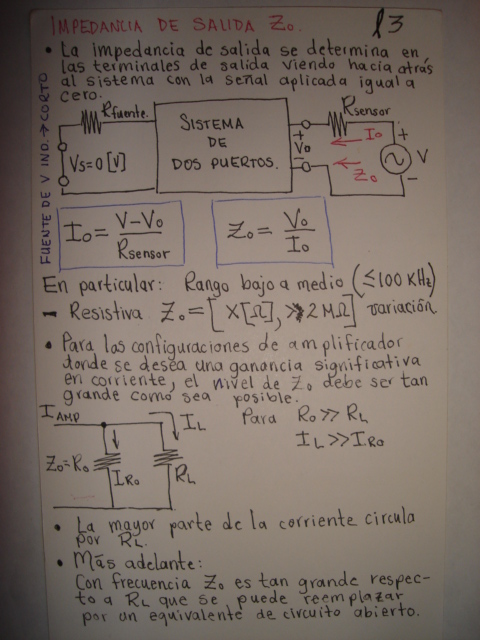 IMPEDANCIA DE SALIDA Zo.
l3
• La impedancia de salida se determina en
las terminales de salida viendo hacia atrás
al sistema con la señal aplicada igual a
cero.
FUENTE DE V IND. → CORTO
Rfuente.
Vs=0 [V]
SISTEMA
DE
DOS PUERTOS.
+
Vo
−
Rsensor
Io
Zo
+
V
−
Io = V−Vo / Rsensor
Zo = Vo / Io
En particular: Rango bajo a medio (≤100 KHz)
– Resistiva Zo = [ X[Ω], >2MΩ] variación
• Para las configuraciones de amplificador
donde se desea una ganancia significativa
en corriente, el nivel de Zo debe ser tan
grande como sea posible.
IAMP
IL
Zo=Ro
IRo
RL
Para Ro >> RL
IL >> IRo
• La mayor parte de la corriente circula
por RL.
• Más adelante:
Con frecuencia Zo es tan grande respec-
to a RL que se puede reemplazar
por un equivalente de circuito abierto.